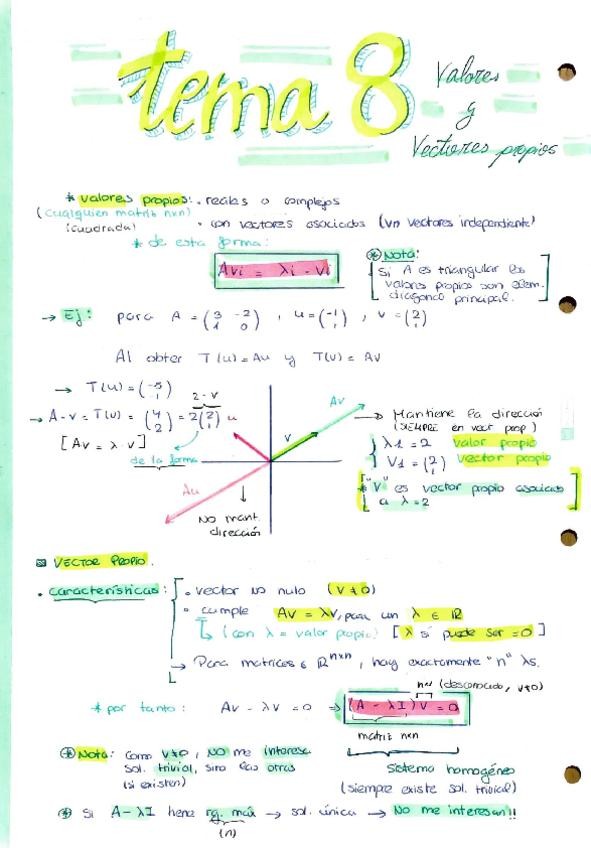 tema 8
Valores
y
Vectores propios
* valores propios: . reales o complejos
(cualquier matriz nxn)
(cuadrada)
· con vectores asociados (vn vectores independiente)
* de esta forma:
Avi = λi - Vi
* Nota:
Si A es triangular los
valores propios son elem.
diagonal principal.
→ Ej: para A = (3 -2 / 1 0), u = (-1 / 1), v = (2 / 1)
Al obter T(u) = Au y T(v) = Av
→ T(u) = (-5 / -1)
2-v
→ A-v = T(v) = (4 / 2) = 2(2 / 1)
[Av = λ v]
de la forma
u
v
Av
Au
No mant.
dirección
→ Mantiene la dirección
(SIEMPRE en vect prop)
λ1 = 2 valor propio
V1 = (2 / 1) vector propio
* "v" es vector propio asociado
a λ=2
VECTOR PROPIO.
. características: . vector no nulo (v≠0)
· cumple Av = λv, para un λ ∈ ℝ
↳ (con λ = valor propio) [λ si puede ser = 0]
→ Para matrices ∈ ℝ nxn, hay exactamente "n" λs.
nx1 (desconocido, v≠0)
* por tanto: Av - λv = 0 → (A - λI)v = 0
matriz nxn
* Nota: Como v≠0, NO me interesa
sol. trivial, sino las otras
(si existen)
Sistema homogéneo
(siempre existe sol. trivial)
* Si A-λI tiene rg. máx → sol. única → No me interesan!!
(n)